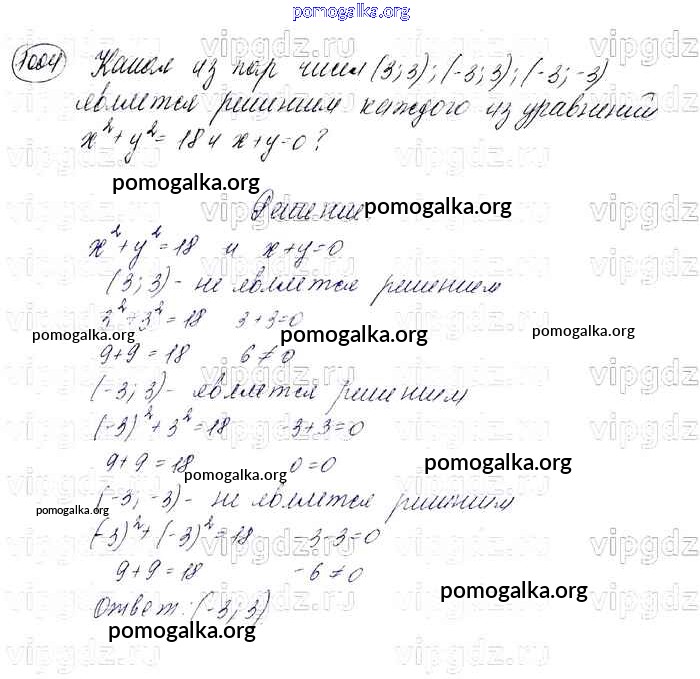 pomogalka.org
1004 Какая из пар чисел (3;3); (-3;3); (-3;-3)
является решением каждого из уравнений
x²+y²=18 и x+y=0?
pomogalka.org
Решение pomogalka.org
x²+y²=18 и x+y=0
(3;3)- не является решением
3²+3²=18 3+3=0
pomogalka.org pomogalka.org pomogalka.org
9+9=18 6≠0
(-3;3)- является решением
(-3)²+3²=18 -3+3=0
9+9=18 0=0 pomogalka.org
pomogalka.org
(-3;-3)- не является решением
pomogalka.org
(-3)²+(-3)²=18 -3-3=0
9+9=18 -6≠0
pomogalka.org
Ответ: (-3;3)
pomogalka.org